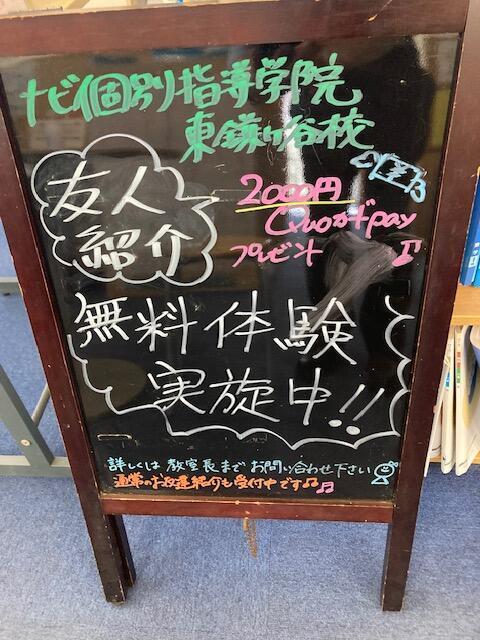 ナビ個別指導学院
東鎌ヶ谷校
友人
紹介
2000円
Quoカードpay
プレゼント
無料体験
実施中!!
詳しくは 教室長まで お問い合わせ下さい
通常のお友達紹介も受付中です♫♫